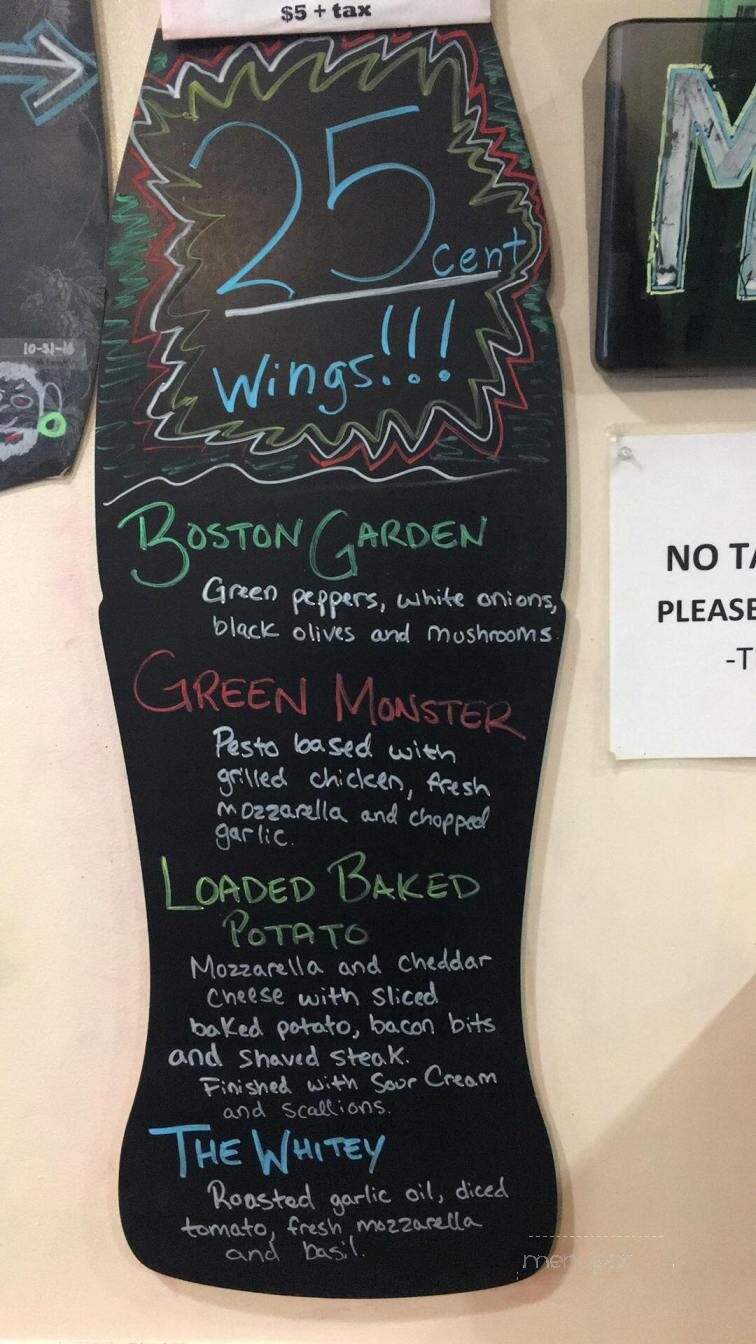 $5 + tax
25
cent
Wings!!!
10-31-16
M
NO TA
PLEASE
-T
BOSTON GARDEN
Green peppers, white onions,
black olives and mushrooms
GREEN MONSTER
Pesto based with
grilled chicken, fresh
mozzarella and chopped
garlic.
LOADED BAKED
POTATO
Mozzarella and cheddar
cheese with sliced
baked potato, bacon bits
and shaved steak.
Finished with Sour Cream
and scallions.
THE WHITEY
Roasted garlic oil, diced
tomato, fresh mozzarella
and basil.